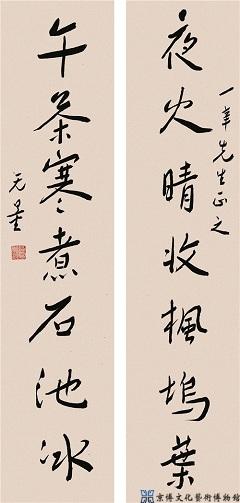 夜火晴收楓塢葉
一峯先生正之
午茶寒煮石池冰
无量
京博文化藝術博物館